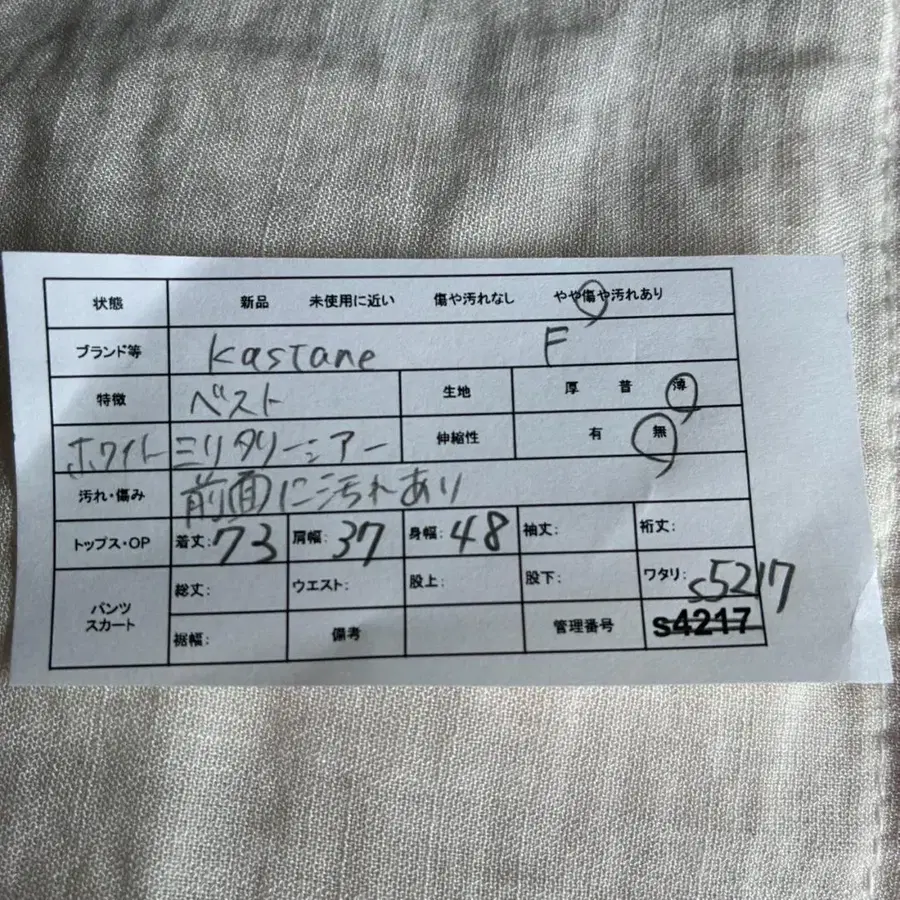 状態 新品 未使用に近い 傷や汚れなし やや傷や汚れあり
ブランド等 Kastane F
特徴 ベスト 生地 厚 普 薄
ホワイト ミリタリーシアー 伸縮性 有 無
汚れ・傷み 前面に汚れあり
トップス・OP 着丈:73 肩幅:37 身幅:48 袖丈: 裄丈:
パンツ スカート 総丈: ウエスト: 股上: 股下: ワタリ: s5217
裾幅: 備考 管理番号 s4217